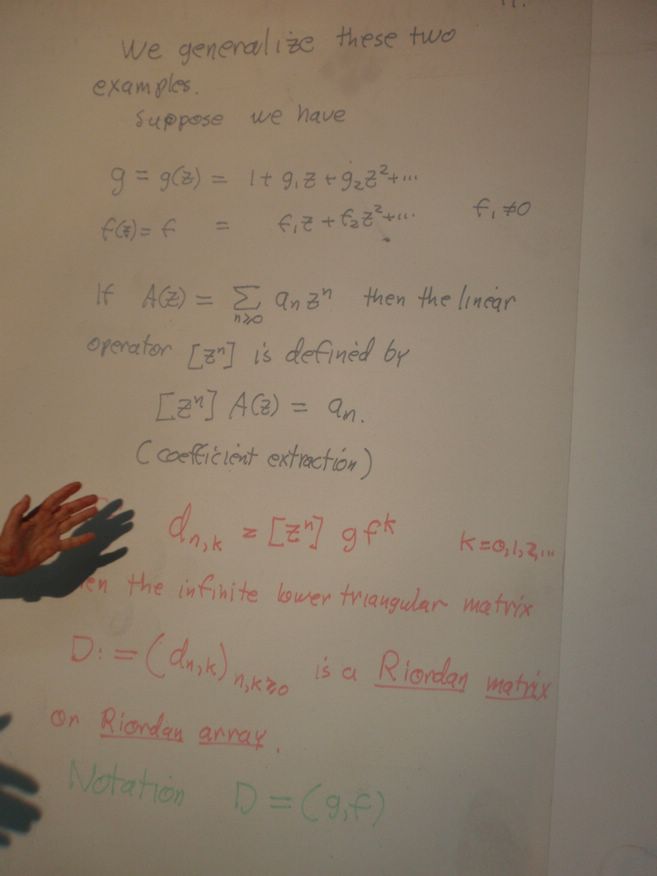 We generalize these two
examples.
Suppose we have
g = g(z) = 1 + g₁z + g₂z² + ...
f(z) = f = f₁z + f₂z² + ... f₁ ≠ 0
If A(z) = Σ_{n≥0} aₙzⁿ then the linear
operator [zⁿ] is defined by
[zⁿ] A(z) = aₙ.
(coefficient extraction)
d_{n,k} = [zⁿ] g f^k k=0,1,2,...
the infinite lower triangular matrix
D := (d_{n,k})_{n,k≥0} is a Riordan matrix
or Riordan array.
Notation D = (g, f)